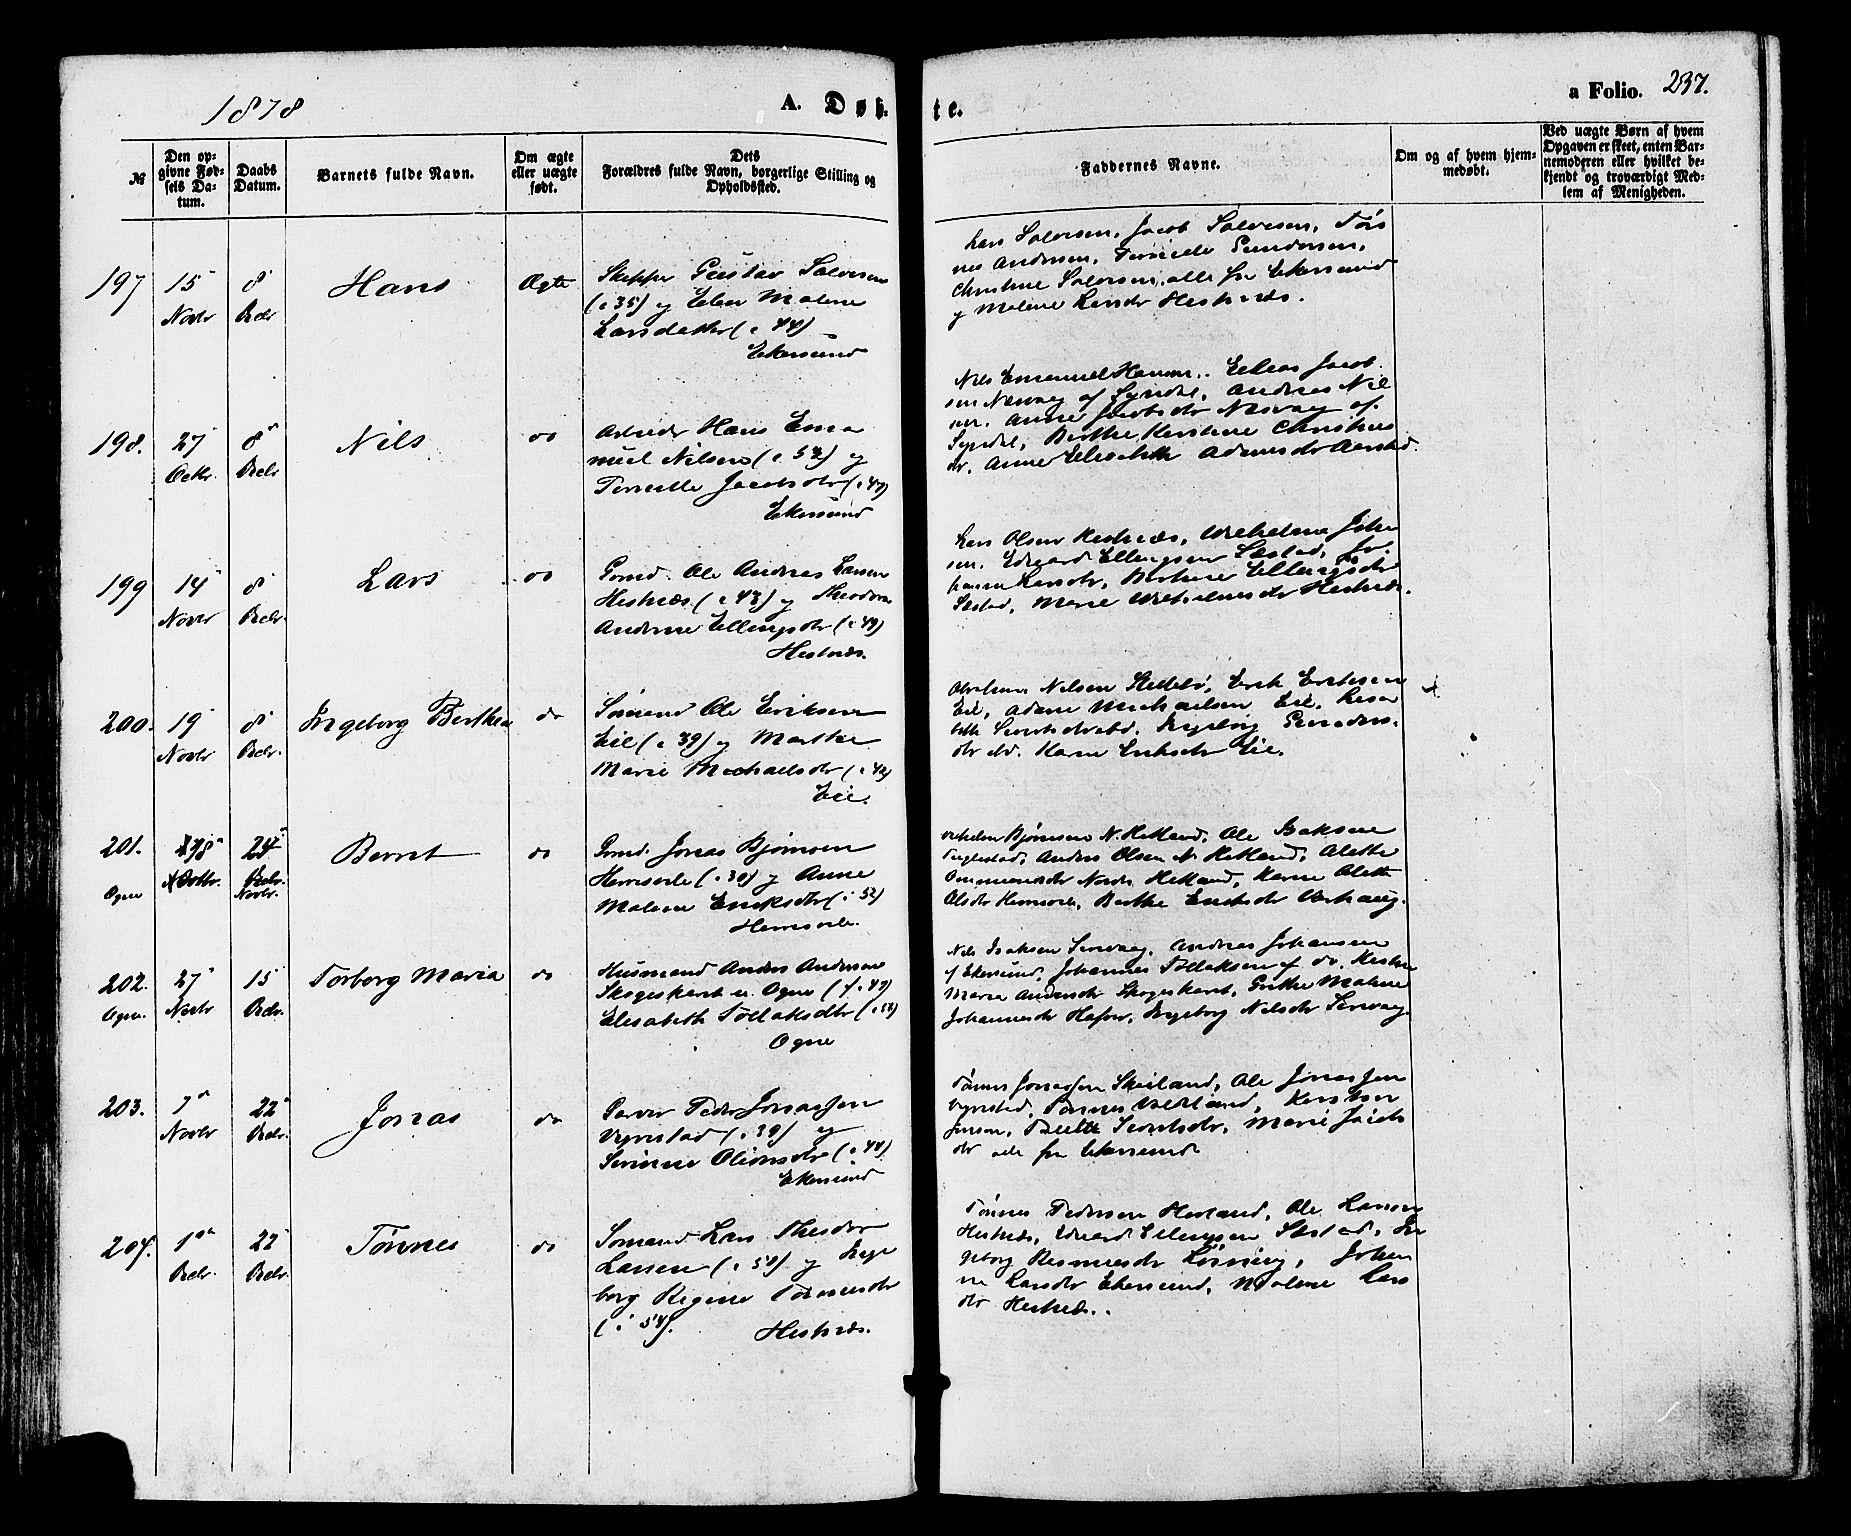 1878
A. Døb- te.
a Folio. 237.
№
Den op-
givne Fød-
sels Da-
tum.
Daabs
Datum.
Barnets fulde Navn.
Om ægte
eller uægte
født.
Dets
Forældres fulde Navn, borgerlige Stilling og
Opholdssted.
Faddernes Navne.
Om og af hvem hjem-
medøbt.
Ved uægte Børn af hvem
Opgaven er skeet, enten Bar-
nemoderen eller hvilket be-
kjendt og troværdigt Med-
lem af Menigheden.
197 15 Novbr 8 Decbr Hans Ægte
Skipper Gustav Salvesen
(: 35) og Elen Malene
Larsdatter (: 44)
Ekersund
Lars Salvesen, Jacob Salvesen, Tøn
nes Andersen, Pernille Gundersen,
Christine Salvesen, alle fra Ekersund
og Malene Larsdr Hestnæs.
198. 27 Octbr. 8 Decbr Nils do
Arbeider Hans Ema
nuel Nilsen (: 52) og
Pernille Jacobsdr (: 47)
Ekersund
Nils Emanuel Hansen, Elias Jacob
sen Nesvaag af Syndal, Andreas Nil
sen, Anne Jacobsdr Nesvaag af
Syndal, Berthe Kirstine Christens
dr, Anne Elisabeth Adamsdr Aarstad.
199 14 Novbr 8 Decbr. Lars do
Grmd. Ole Andreas Larsen
Hestnæs (: 43) og Theodora
Andrine Ellingsdr (: 49)
Hestnæs.
Lars Olsen Hestnæs, Wilhelm Johan
sen, Edvard Ellingsen Sæstad, Jo-
hanne Larsdr, Berthine Ellingsdr
Sæstad, Marie Wilhelmsdr Hestnæs.
200. 19 Novbr 8 Decbr. Ingeborg Berthea do
Sømand Ole Eriksen
Eie (: 39) og Marthe
Marie Michaelsdr (: 42)
Eie.
Abraham Nilsen, Erik Eriksen
Eie, Adam Michaelsen Eie, Lisa
beth, Ingeborg Gunders-
dr, Karen Eriksdr Eie.
201. Ogne 28 Octbr. 24 Novbr. Bernt do
Grmd. Jonas Bjørnsen
Herresvele (: 30) og Anne
Malene Eriksdr (: 52)
Herresvele.
Bjørnsen N. Hetland, Ole Isaksen
Anders Olsen N. Hetland, Alette
Ommundsdr Nordre Hetland, Karen Alette
Olsdr, Berthe Eriksdr Varhaug.
202. Ogne. 27 Novbr 15 Decbr. Torborg Maria do
Husmand Anders Andersen
Skogeskaret u. Ogne (f. 49)
Elisabeth Tollaksdtr (: 52)
Ogne
Nils Isaksen Sirevaag, Andreas Johansen
af Ekersund, Johannes Tollaksen af do,
Maria Andersdr Skogeskaret, Grethe Malene
Johannesdr, Ingeborg Nilsdr Sirevaag.
203. 7 Novbr 22 Decbr. Jonas do
Garver Peder Jonassen
Vynstad (: 39) og
Serine Olsdr (: 44)
Ekersund
Tønnes Jonassen Skeiland, Ole Jonassen
Vynstad, Tønnes Vatland,
Jensen, Marie Jacobs
dr alle fra Ekersund
204. 1 Decbr. 22 Decbr. Tønnes do
Sømand Lars Theodor
Larsen (: 50) og Inge
borg Regine Tønnesdr
(: 54). Hestnæs.
Tønnes Pedersen, Ole Larsen
Hestnæs, Edvard Ellingsen Sæstad, In
geborg Rasmusdr, Johan
ne Larsdr Ekersund, Malene Lars
dr Hestnæs.